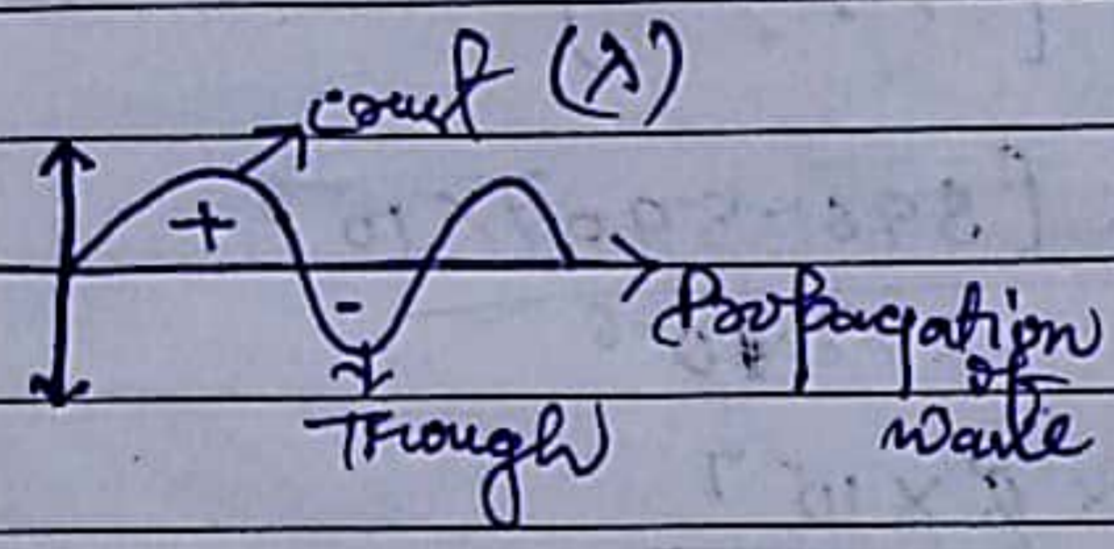 crest (λ)
+
-
Propagation
of
Wave
Trough